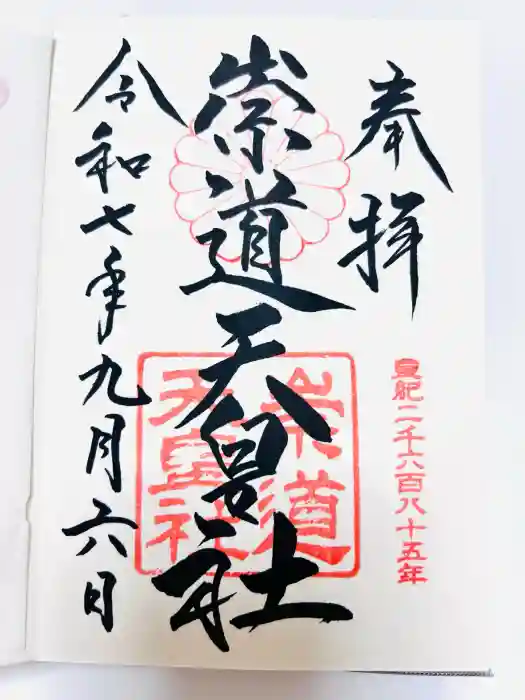 奉拝
皇紀二千六百八十五年
崇道天皇社
崇道
天皇社
令和七年九月六日